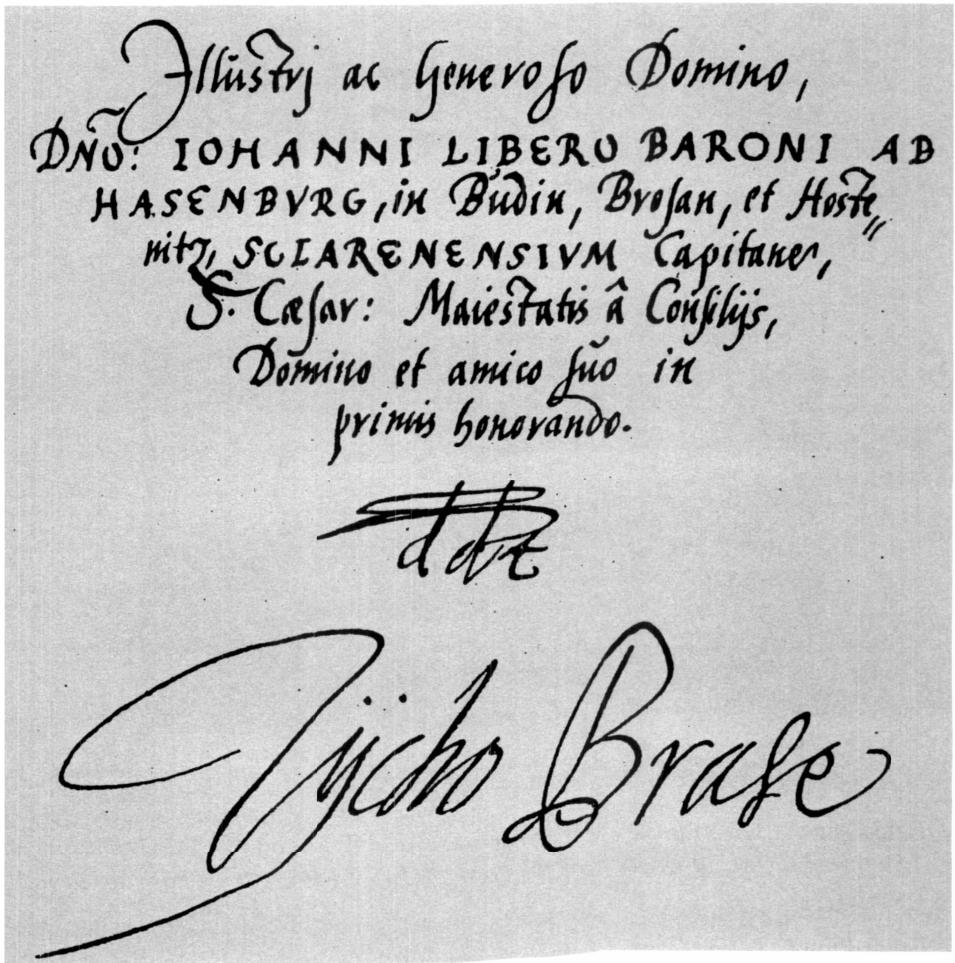 Illustrj ac Generoso Domino,
DNŌ: IOHANNI LIBERO BARONI AB
HASENBVRG, in Budin, Brosan, et Hoste„
nitz, SCLARENENSIVM Capitaneo,
S. Cæsar: Maiestatis â Consilijs,
Domino et amico suo in
primis honorando.
Tÿcho Brahe